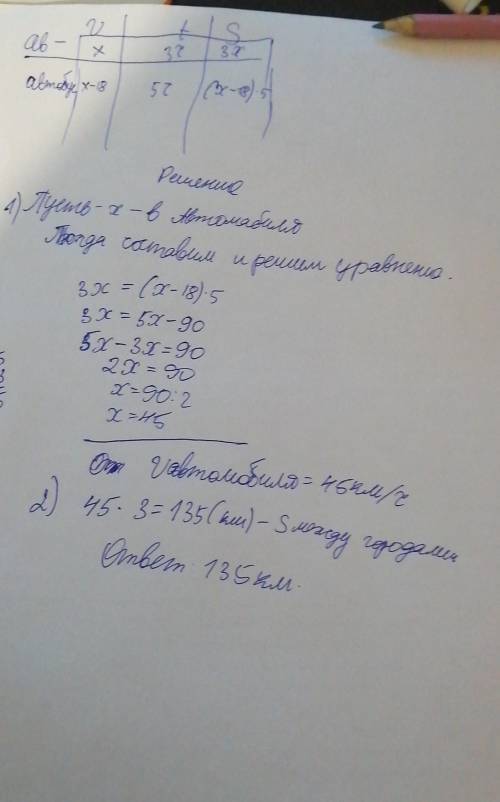 V t S
ав - x 3г 3x
автобус x-18 5г (x-18)·5
Решение
1) Пусть - x - в Автомабиля
Тогда составим и решим уравнение.
3x = (x-18)·5
3x = 5x-90
5x-3x=90
2x = 90
x=90:2
x=45
Vавтомобиля = 45км/г
2) 45 · 3 = 135 (км) - S между городами
Ответ 135км.